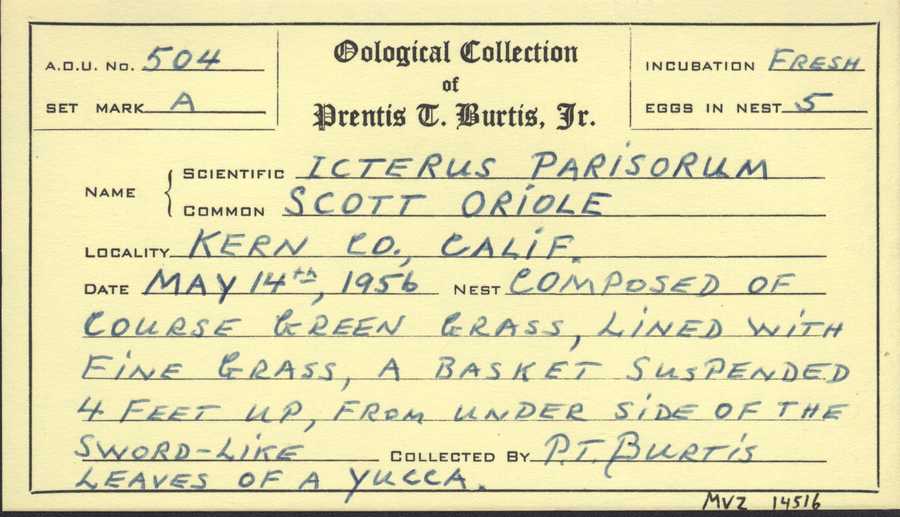 A.O.U. No. 504
SET MARK A
Oological Collection
of
Prentis T. Burtis, Jr.
INCUBATION FRESH
EGGS IN NEST 5
NAME
SCIENTIFIC ICTERUS PARISORUM
COMMON SCOTT ORIOLE
LOCALITY KERN CO., CALIF.
DATE MAY 14th, 1956 NEST COMPOSED OF
COURSE GREEN GRASS, LINED WITH
FINE GRASS, A BASKET SUSPENDED
4 FEET UP, FROM UNDER SIDE OF THE
SWORD-LIKE COLLECTED BY P.T. BURTIS
LEAVES OF A YUCCA.
MVZ 14516